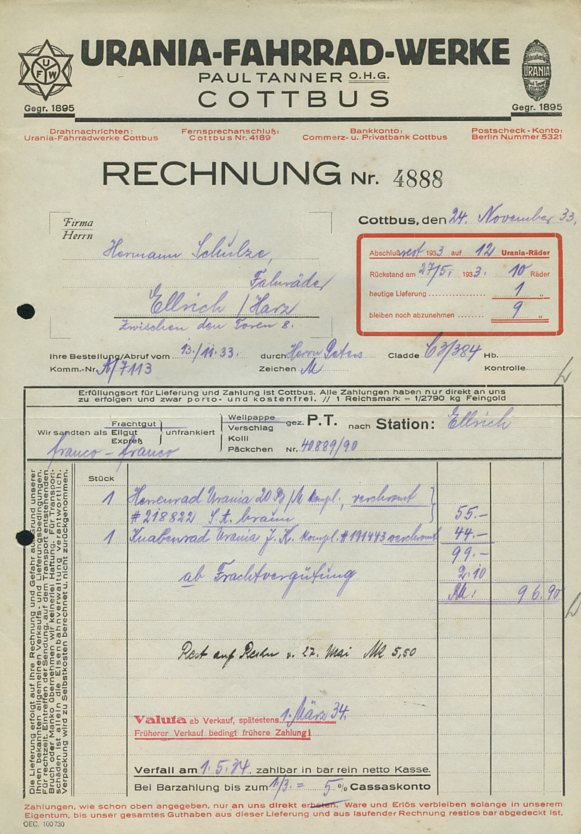 UFW
URANIA-FAHRRAD-WERKE
PAUL TANNER O.H.G.
COTTBUS
Gegr. 1895
URANIA
Gegr. 1895
Drahtnachrichten: Urania-Fahrradwerke Cottbus
Fernsprechanschluß: Cottbus Nr. 4189
Bankkonto: Commerz- u. Privatbank Cottbus
Postscheck-Konto: Berlin Nummer 5321
RECHNUNG Nr. 4888
Cottbus, den 24. November 33.
Firma
Herrn
Hermann Schulze,
Fahrräder
Ellrich / Harz
Zwischen den Toren 8.
Abschluß rest 1933 auf 12 Urania-Räder
Rückstand am 27/5. 1933. 10 Räder
heutige Lieferung 1 "
bleiben noch abzunehmen 9 "
Ihre Bestellung/Abruf vom 13./11.33. durch Herrn Peters Cladde C3/384 Hb.
Komm.-Nr. A/7113 Zeichen M Kontrolle
Erfüllungsort für Lieferung und Zahlung ist Cottbus. Alle Zahlungen haben nur direkt an uns
zu erfolgen und zwar porto- und kostenfrei. // 1 Reichsmark = 1/2790 kg Feingold
Wir sandten als Frachtgut Eilgut Expreß unfrankiert
franco - franco
Wellpappe Verschlag Kolli Päckchen gez. P.T. nach Station: Ellrich
Nr. 40889/90
Die Lieferung erfolgt auf Ihre Rechnung und Gefahr auf Grund unserer
Ihnen bekannten allgemeinen Verkaufs- und Lieferungsbedingungen.
Für rechtzeit. Eintreffen der Sendung, auf dem Transport entstehenden
Bruch oder Manko übernehmen wir keinerlei Haftung. Für Transport-
schäden ist allein die Eisenbahnverwaltung verantwortlich.
Verpackung wird zu Selbstkosten berechnet u. nicht zurückgenommen.
Stück
1 Herrenrad Urania 20 kompl., verchromt
# 218822 St. braun 55.-
1 Knabenrad Urania J. K. kompl. # 191443 verchromt 44.-
99.-
ab Frachtvergütung 2.10
M. 96.90
Rest auf Rechn v. 27. Mai Mk 5,50
Valuta ab Verkauf, spätestens 1. März 34.
Früherer Verkauf bedingt frühere Zahlung!
Verfall am 1.5.34. zahlbar in bar rein netto Kasse.
Bei Barzahlung bis zum 1/3. = 5 % Cassaskonto
Zahlungen, wie schon oben angegeben, nur an uns direkt erbeten. Ware und Erlös verbleiben solange in unserem
Eigentum, bis unser gesamtes Guthaben aus dieser Lieferung und aus laufender Rechnung restlos bar abgedeckt ist.
OEC. 100730